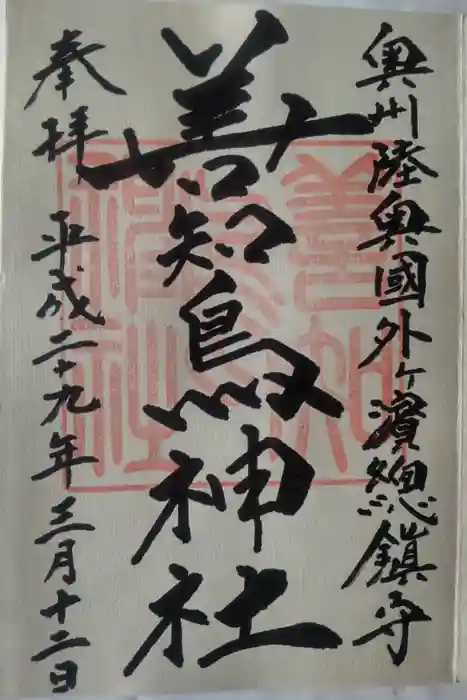 奥州陸奥國外ケ濱總鎮守
善知鳥神社
奉拝 平成二十九年三月十二日
善知鳥神社